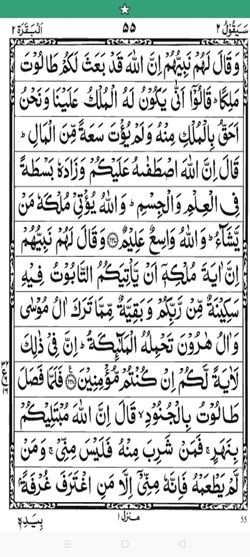 سَيَقُوْلُ ٢ ٥٥ اَلْبَقَرَة ٢
وَقَالَ لَهُمْ نَبِيُّهُمْ اِنَّ اللّٰهَ قَدْ بَعَثَ لَكُمْ طَالُوْتَ
مَلِكًا ؕ قَالُوْۤا اَنّٰى يَكُوْنُ لَهُ الْمُلْكُ عَلَيْنَا وَنَحْنُ
اَحَقُّ بِالْمُلْكِ مِنْهُ وَلَمْ يُؤْتَ سَعَةً مِّنَ الْمَالِ ؕ
قَالَ اِنَّ اللّٰهَ اصْطَفٰىهُ عَلَيْكُمْ وَزَادَهٗ بَسْطَةً
فِي الْعِلْمِ وَالْجِسْمِ ؕ وَاللّٰهُ يُؤْتِيْ مُلْكَهٗ مَنْ
يَّشَآءُ ؕ وَاللّٰهُ وَاسِعٌ عَلِيْمٌ ﴿٢٤٧﴾ وَقَالَ لَهُمْ نَبِيُّهُمْ
اِنَّ اٰيَةَ مُلْكِهٖۤ اَنْ يَّاْتِيَكُمُ التَّابُوْتُ فِيْهِ
سَكِيْنَةٌ مِّنْ رَّبِّكُمْ وَبَقِيَّةٌ مِّمَّا تَرَكَ اٰلُ مُوْسٰى
وَاٰلُ هٰرُوْنَ تَحْمِلُهُ الْمَلٰٓئِكَةُ ؕ اِنَّ فِيْ ذٰلِكَ
لَاٰيَةً لَّكُمْ اِنْ كُنْتُمْ مُّؤْمِنِيْنَ ﴿٢٤٨﴾ فَلَمَّا فَصَلَ
طَالُوْتُ بِالْجُنُوْدِ ۙ قَالَ اِنَّ اللّٰهَ مُبْتَلِيْكُمْ
بِنَهَرٍ ۚ فَمَنْ شَرِبَ مِنْهُ فَلَيْسَ مِنِّيْ ۚ وَمَنْ
لَّمْ يَطْعَمْهُ فَاِنَّهٗ مِنِّيْۤ اِلَّا مَنِ اغْتَرَفَ غُرْفَةًۢ
بِيَدِهٖ ۚ منزل ١ 55